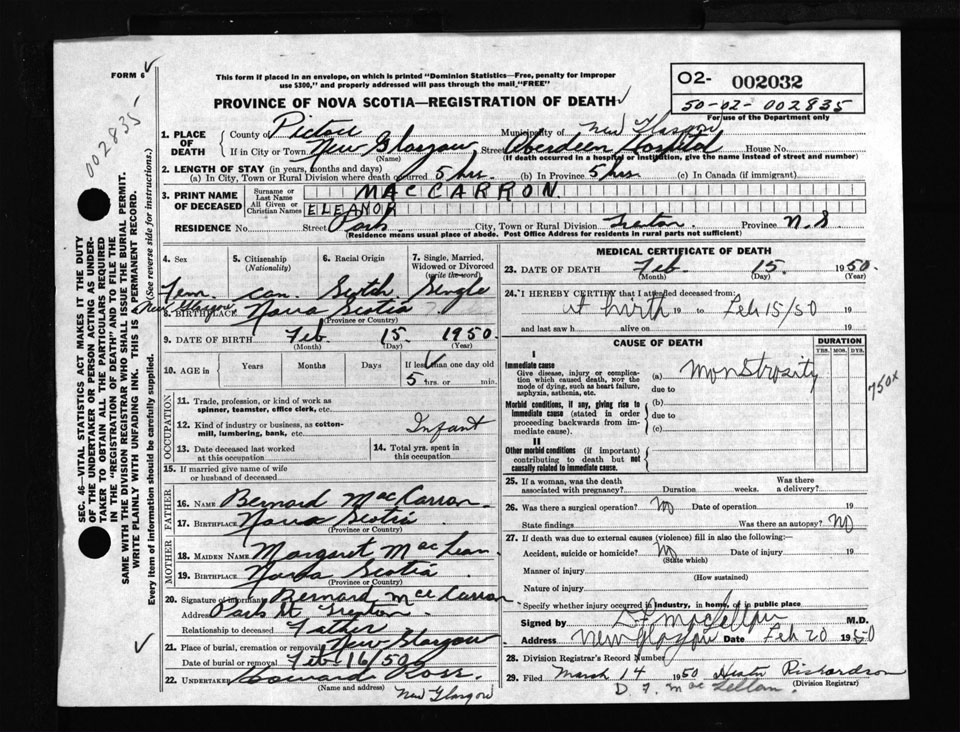 FORM 6
This form if placed in an envelope, on which is printed "Dominion Statistics—Free, penalty for improper
use $300," and properly addressed will pass through the mail "FREE"
PROVINCE OF NOVA SCOTIA—REGISTRATION OF DEATH
O2- 002032
50-02-002835
For use of the Department only
002835
1. PLACE OF DEATH
County of Pictou Municipality of New Glasgow
If in City or Town New Glasgow Street Aberdeen Hospital House No.
(Name) (If death occurred in a hospital or institution, give the name instead of street and number)
2. LENGTH OF STAY (in years, months and days)
(a) In City, Town or Rural Division where death occurred 5 hrs. (b) In Province 5 hrs. (c) In Canada (if immigrant)
3. PRINT NAME OF DECEASED
Surname or Last Name MACCARRON
All Given or Christian Names ELEANOR
RESIDENCE No. Street Park City, Town or Rural Division Trenton Province N.S
(Residence means usual place of abode. Post Office Address for residents in rural parts not sufficient)
4. Sex 5. Citizenship (Nationality) 6. Racial Origin 7. Single, Married, Widowed or Divorced (write the word)
Fem. Can. Scotch Single
New Glasgow
8. BIRTHPLACE Nova Scotia
(Province or Country)
9. DATE OF BIRTH Feb. 15. 1950.
(Month) (Day) (Year)
10. AGE in Years Months Days If less than one day old
5 hrs. or min.
OCCUPATION
11. Trade, profession, or kind of work as spinner, teamster, office clerk, etc.
12. Kind of industry or business, as cotton-mill, lumbering, bank, etc. Infant
13. Date deceased last worked at this occupation
14. Total yrs. spent in this occupation
15. If married give name of wife or husband of deceased
FATHER
16. NAME Bernard MacCarron
17. BIRTHPLACE Nova Scotia
(Province or Country)
MOTHER
18. MAIDEN NAME Margaret MacLean
19. BIRTHPLACE Nova Scotia
(Province or Country)
20. Signature of informant Bernard MacCarron
Address Park St Trenton
Relationship to deceased Father
21. Place of burial, cremation or removal New Glasgow
Date of burial or removal Feb 16/50
22. UNDERTAKER Ross.
(Name and address) New Glasgow
MEDICAL CERTIFICATE OF DEATH
23. DATE OF DEATH Feb. 15. 1950.
(Month) (Day)
24. I HEREBY CERTIFY that I attended deceased from:
at birth 19 to Feb 15/50 19
and last saw h alive on 19
CAUSE OF DEATH
DURATION
YRS. MOS. DYS.
I
Immediate cause
Give disease, injury or complication which caused death, NOT the mode of dying, such as heart failure, asphyxia, asthenia, etc.
(a) Monstrosity
due to
750x
Morbid conditions, if any, giving rise to immediate cause (stated in order proceeding backwards from immediate cause).
(b)
due to
(c)
II
Other morbid conditions (if important) contributing to death but not causally related to immediate cause.
25. If a woman, was the death associated with pregnancy? Duration weeks. Was there a delivery?
26. Was there a surgical operation? No Date of operation 19
State findings Was there an autopsy? No
27. If death was due to external causes (violence) fill in also the following:—
Accident, suicide or homicide? No Date of injury 19
(State which)
Manner of injury
(How sustained)
Nature of injury
Specify whether injury occurred in industry, in home, or in public place
Signed by D F MacLellan M.D.
Address New Glasgow Date Feb 20 1950
28. Division Registrar's Record Number
29. Filed March 14 1950 Hester Richardson
(Division Registrar)
D. F. MacLellan.
SEC. 46—VITAL STATISTICS ACT MAKES IT THE DUTY
OF THE UNDERTAKER OR PERSON ACTING AS UNDER-
TAKER TO OBTAIN ALL THE PARTICULARS REQUIRED
IN THE "REGISTRATION OF DEATH" AND TO FILE THE
SAME WITH THE DIVISION REGISTRAR WHO SHALL ISSUE THE BURIAL PERMIT.
WRITE PLAINLY WITH UNFADING INK. THIS IS A PERMANENT RECORD.
Every item of information should be carefully supplied. (See reverse side for instructions.)